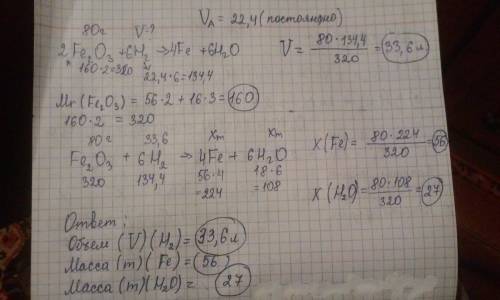 V_A = 22,4 (постоянно)
80г V-?
2Fe₂O₃ + 6H₂ → 4Fe + 6H₂O
160·2=320
22,4·6=134,4
V = 80·134,4 / 320 = 33,6 л
Mr (Fe₂O₃) = 56·2 + 16·3 = 160
160·2 = 320
80г 33,6 Xm Xm
Fe₂O₃ + 6H₂ → 4Fe + 6H₂O
320 134,4 56·4 18·6
=224 =108
X (Fe) = 80·224 / 320 = 56
X (H₂O) = 80·108 / 320 = 27
Ответ:
Объем (V) (H₂) = 33,6 л
Масса (m) (Fe) = 56
Масса (m) (H₂O) = 27